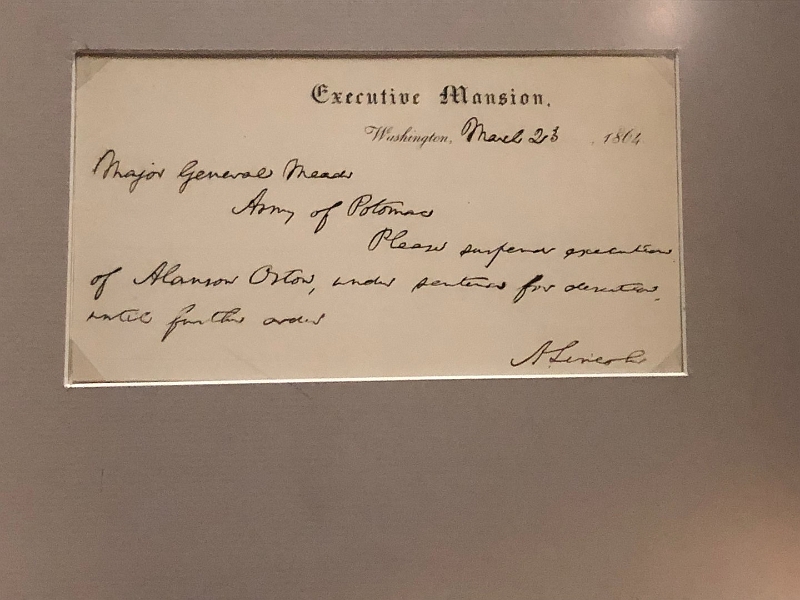 Executive Mansion,
Washington, March 23, 1864.
Major General Meade
Army of Potomac
Please suspend execution
of Alanson Orton, under sentence for desertion,
until further order
A. Lincoln